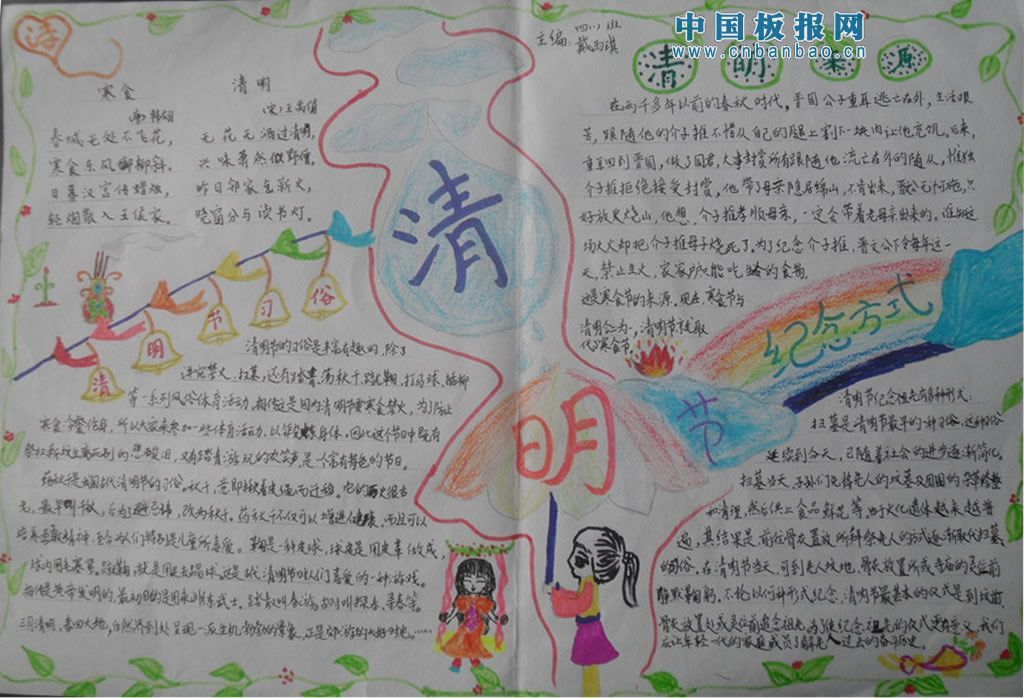 中国板报网
www.cnbanbao.cn
主编:
清明来源
寒食
清明
春城无处不飞花,
寒食东风御柳斜。
日暮汉宫传蜡烛,
轻烟散入
王侯家。
无花无酒过清明,
兴味萧然似野僧。
昨日邻家乞新火,
晓窗分与读书灯。
在两千多年以前的春秋时代,晋国公子重耳逃亡在外,生活艰
苦,跟随他的介子推不惜从自己的腿上割下一块肉让他充饥。后来,
重耳回到晋国,做了国君,大事封赏所有跟随他流亡在外的随从,惟独
介子推拒绝接受封赏,他带了母亲隐居绵山,不肯出来,
好放火烧山,他想,介子推孝顺母亲,一定会带着老母亲出来的。谁知这
场大火却把介子推母子烧死了。为了纪念介子推,晋文公下令每年这一
天,禁止生火,家家户户只能吃
冷的食物,
这是寒食节的来源。现在,寒食节与
清明合为一,清明节就取
代了寒食节
清明节习俗
清
明
节
纪念方式
清明节的习俗是丰富有趣的,除了
讲究禁火、扫墓,还有踏青、荡秋千、蹴鞠、打马球、插柳
等一系列风俗体育活动。相传这是因为清明节要寒食禁火,为了防止
寒食冷餐伤身,所以大家来参加一些体育活动,以锻炼身体。因此这个节日中既有
祭扫新坟生离死别的悲酸泪,又有踏青游玩的欢笑声,是一个富有特色的节日。
意即揪着皮绳而迁移。它的历史很古
老,最早叫千秋,后为了避忌讳,改为秋千。荡秋千不仅可以增进健康,而且可以
培养勇敢精神,至今为人们特别是儿童所喜爱。鞠是一种皮球,球皮是用皮革做成,
球内用毛塞紧。蹴鞠,就是用足去踢球。这是古代清明节时人们喜爱的一种游戏。
相传是黄帝发明的,最初目的是用来训练武士。踏青叫春游,古时叫探春、寻春等。
三月清明,春回大地,自然界到处呈现一派生机勃勃的景象,正是郊游的大好时光……
清明节纪念祖先有多种形式:
扫墓是清明节最早的一种习俗,这种习俗
延续到今天,已随着社会的进步逐渐简化。
扫墓当天,子孙们先将先人的坟墓及周围的杂草修整
和清理,然后供上食品鲜花等。由于火化遗体越来越普
遍,其结果是前往骨灰置放
的方式逐渐取代扫墓
的习俗。在清明节当天,可到先人坟地、骨灰放置所或寺庙的灵位前
静默鞠躬。不论以何种形式纪念,清明节最基本的仪式是到坟前、
骨灰放置处或灵位前追念祖先。为了使纪念祖先的仪式更有意义,我们
应让年轻一代的家庭成员了解先人过去的奋斗历史。